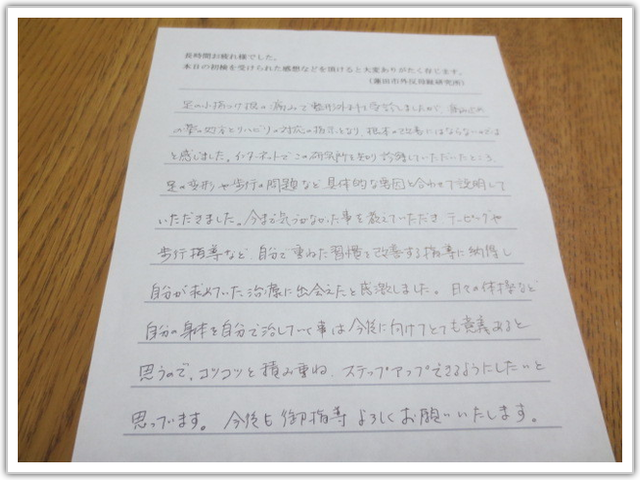 長時間お疲れ様でした。
本日の初検を受けられた感想などを頂けると大変ありがたく存じます。
（蓮田市外反母趾研究所）
足の小指つけ根の痛みで整形外科を受診しましたが、痛み止め
の薬の処方とリハビリの対応の指示となり 根本の改善にはならないのでは
と感じました。インターネットでこの研究所を知り 診察していただいたところ
足の変形や歩行の問題など 具体的な要因と合わせて説明して
いただきました。今まで気づかなかった事を教えていただき、テーピングや
歩行指導など 自分で重ねた習慣を改善する指導に納得し
自分が求めていた治療に出会えたと感激しました。日々の体操など
自分の身体を自分で治していく事は今後に向けてとても意義あると
思うので、コツコツと積み重ね、ステップアップできるようにしたいと
思っています。今後も御指導よろしくお願いいたします。